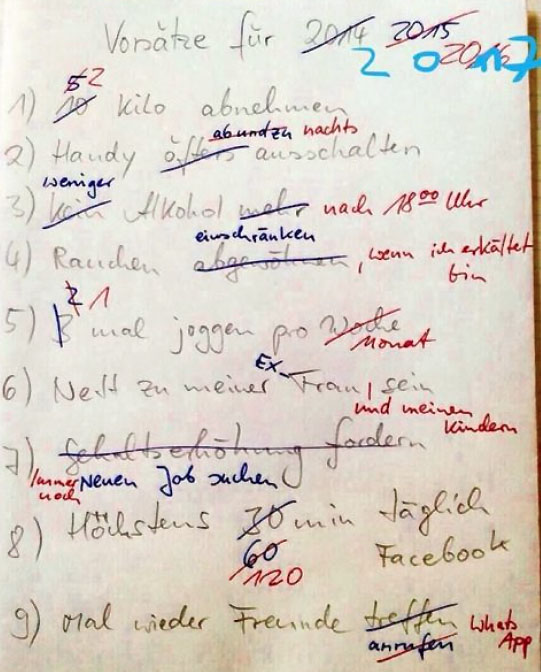 Vorsätze für 2014 2015 2016 2017
5 2
1) 10 Kilo abnehmen
ab und zu nachts
2) Handy öfters ausschalten
weniger
3) Kein Alkohol mehr nach 18 00 Uhr
einschränken
4) Rauchen abgewöhnen, wenn ich erkältet
bin
2 1
5) 3 mal joggen pro Woche
Monat
Ex-
6) Nett zu meiner Frau, sein
und meinen
Kindern
7) Gehaltserhöhung fordern
Immer noch Neuen Job suchen
8) Höchstens 30 min täglich
60 Facebook
120
9) Mal wieder Freunde treffen Whats
anrufen App